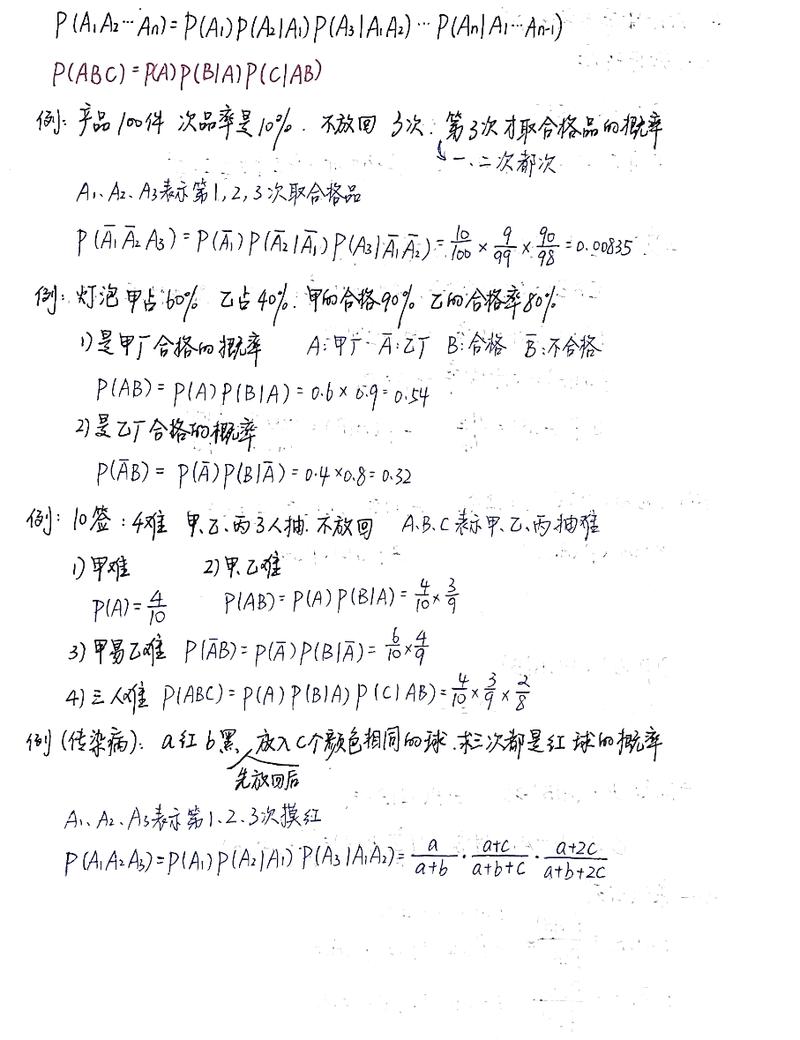 P(A₁A₂…Aₙ)=P(A₁)P(A₂|A₁)P(A₃|A₁A₂)…P(Aₙ|A₁…Aₙ₋₁)
P(ABC)=P(A)P(B|A)P(C|AB)
例: 产品100件 次品率是10%. 不放回 3次. 第3次才取合格品的概率
一、二次都次
A₁、A₂、A₃表示第1,2,3次取合格品
P(A̅₁A̅₂A₃)=P(A̅₁)P(A̅₂|A̅₁)P(A₃|A̅₁A̅₂)=10/100×9/99×90/98=0.00835
例: 灯泡甲占60% 乙占40%. 甲的合格90% 乙的合格率80%
1)是甲厂合格的概率 A:甲厂 A̅:乙厂 B:合格 B̅:不合格
P(AB)=P(A)P(B|A)=0.6×0.9=0.54
2)是乙厂合格的概率
P(A̅B)=P(A̅)P(B|A̅)=0.4×0.8=0.32
例: 10签:4难 甲、乙、丙3人抽. 不放回 A.B.C表示甲、乙、丙抽难
1)甲难 2)甲、乙难
P(A)=4/10 P(AB)=P(A)P(B|A)=4/10×3/9
3)甲易乙难 P(A̅B)=P(A̅)P(B|A̅)=6/10×4/9
4)三人难 P(ABC)=P(A)P(B|A)P(C|AB)=4/10×3/9×2/8
例(传染病): a红b黑, 放入c个颜色相同的球.求三次都是红球的概率
先放回后
A₁、A₂、A₃表示第1、2、3次摸红
P(A₁A₂A₃)=P(A₁)P(A₂|A₁)P(A₃|A₁A₂)=a/(a+b)·(a+c)/(a+b+c)·(a+2c)/(a+b+2c)